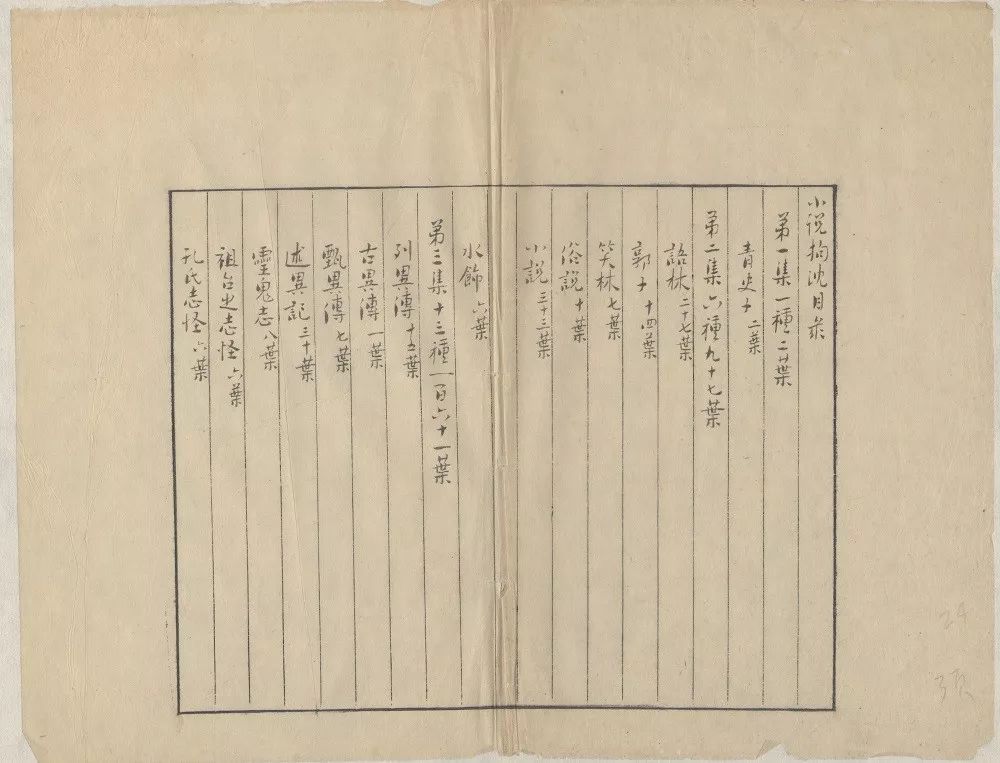 小說拘沈目彔
第一集一種二葉
青史子 二葉
第二集六種九十七葉
語林 二十七葉
郭子 十四葉
笑林 七葉
俗說 十葉
小說 三十三葉
水飾 六葉
第三集十三種一百六十一葉
列異傳 十五葉
古異傳 一葉
甄異傳 七葉
述異記 三十葉
靈鬼志 八葉
祖台之志怪 六葉
孔氏志怪 六葉
24
3页